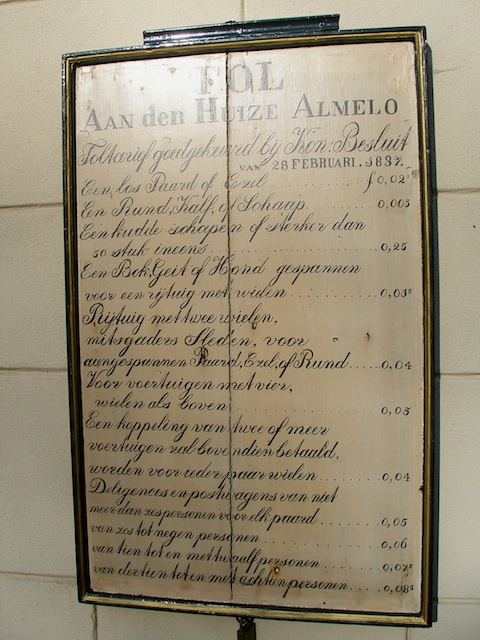 TOL
AAN den HUIZE ALMELO
Toltarief goedgekeurd bij Kon: Besluit
VAN 28 FEBRUARI. 1837.
Een los Paard of Ezel ƒ 0,02⁵
Een Rund, Kalf, of Schaap 0,005
Een kudde schapen of sterker dan
50 stuk ineens 0,25
Een Bok, Geit of Hond gespannen
voor een rijtuig met wielen 0,00⁵
Rijtuig met twee wielen,
mitsgaders Sleden, voor
aangespannen Paard, Ezel, of Rund 0,04
Voor voertuigen met vier,
wielen als boven 0,05
Een koppeling van twee of meer
voertuigen zal bovendien betaald,
worden voor ieder paar wielen 0,04
Deligences en postwagens van niet
meer dan zes personen voor elk paard 0,05
van zes tot negen personen 0,06
van tien tot en met twaalf personen 0,07⁵
van dertien tot en met achtien personen 0,08⁵